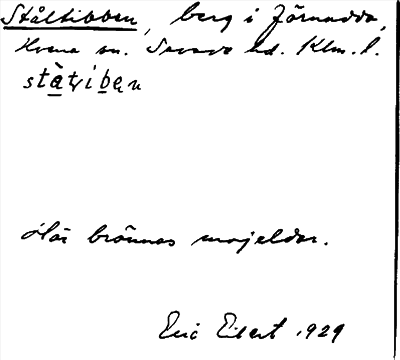 Ståltibben, berg i Järnudda,
Kvena sn. Sevede hd. Klm. l.
stàtibən
Här brännas majeldar.
Eric Elert 1929